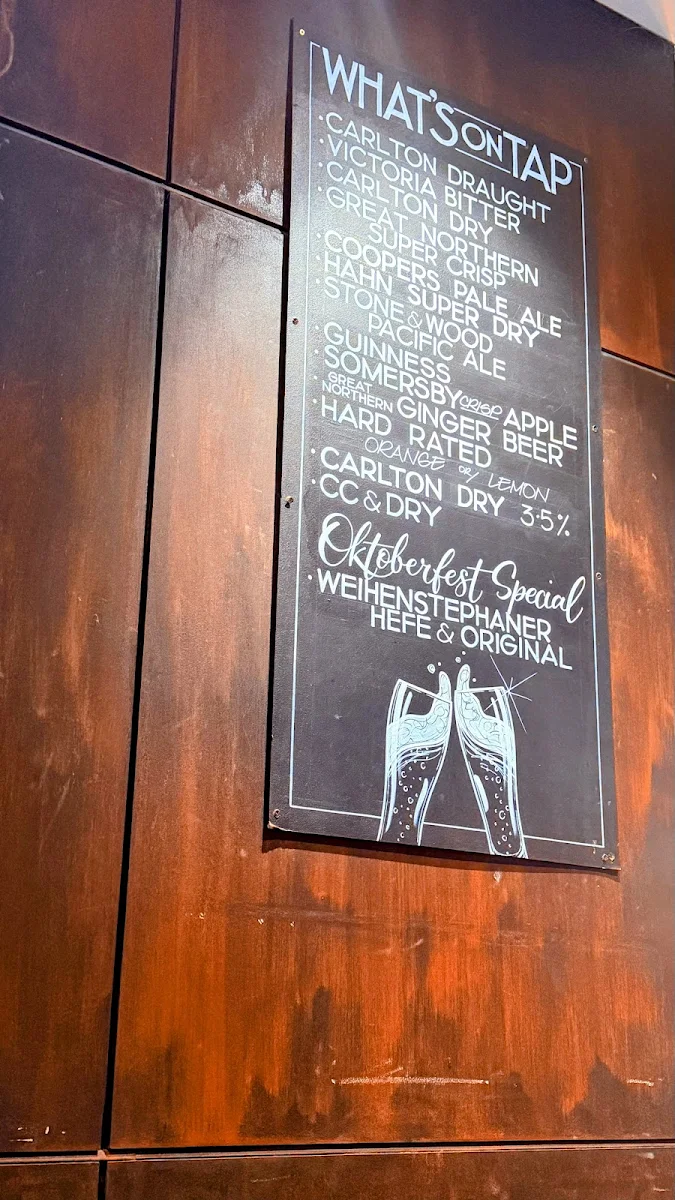 WHAT'S ON TAP
·CARLTON DRAUGHT
·VICTORIA BITTER
·CARLTON DRY
·GREAT NORTHERN
SUPER CRISP
·COOPERS PALE ALE
·HAHN SUPER DRY
·STONE & WOOD
PACIFIC ALE
·GUINNESS
·SOMERSBY CRISP APPLE
·GREAT NORTHERN GINGER BEER
·HARD RATED
ORANGE OR LEMON
·CARLTON DRY 3.5%
·CC & DRY
Oktoberfest Special
·WEIHENSTEPHANER
HEFE & ORIGINAL